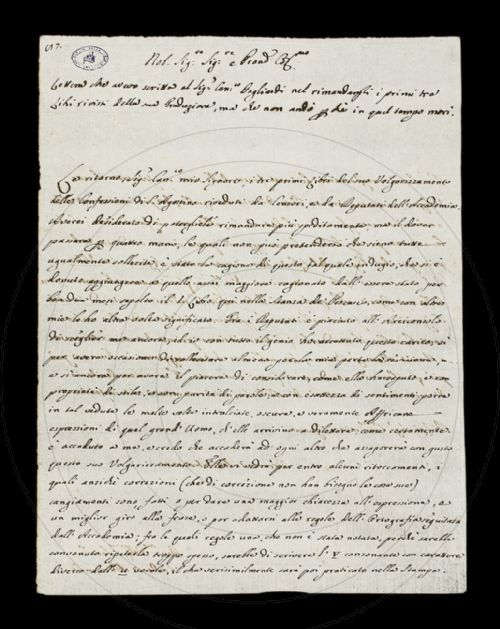 Nob. Sig.re Sig.re e Pron.
Lettera che avevo scritta al Sig.r Can.co Bagliardi nel rimandargli i primi tre
Libri rivisti della sua Traduzione, ma che non andò perchè in quel tempo morì.
Le ritorno, Sig.r Can.co mio Signore, i tre primi Libri del suo Volgarizzamento
delle Confessioni di S. Agostino riveduti da' Censori, e da Deputati dell'Accademia.
Averei desiderato di poterglieli rimandare più speditamente, ma il dover
passare per quattro mani, le quali non può pretendersi che sieno tutte
ugualmente sollecite, è stato la cagione di questo tal quale indugio, che si è
dovuto aggiungere a quello assai maggiore cagionato dall'essere stato, per
ben due mesi sepolto il Libro qui nella Stanza del come con altra
mia le ho altra volta significato. Fra i Deputati è piaciuto all'Arciconsolo
di sceglier me ancora, ed io con tutto il genio ho accettato questo carico, sì
per avere occasione di
e sì ancora per avere il piacere di considerare, come ella ha saputo, e con
proprietà di stile, e con purità di parole, e con esattezza di sentimenti porre
in tal veduta le molte volte intralciate, oscure, e veramente Affricane
espressioni di quel grand'Uomo, ch'elle arrivino a dilettare, come certamente
è accaduto a me, e credo che accaderà ad ogni altro che assaporerà con gusto
questo suo Volgarizzamento. Ella vi vedrà per entro alcuni ritoccamenti, i
quali anzichè correzioni (che di correzione non han bisogno le cose sue)
cangiamenti sono fatti o per dare una maggior chiarezza all'espressione, o
un miglior giro alla frase, o per adattarsi alle regole dell'Ortografia seguitata
dall'Accademia; fra le quali regole una, che non è stata notata, perchè sarebbe
convenuto ripeterla troppo spesso, sarebbe di scrivere l'v consonante con carattere
diverso dall'u vocale, il che verisimilmente sarà poi praticato nella Stampa.